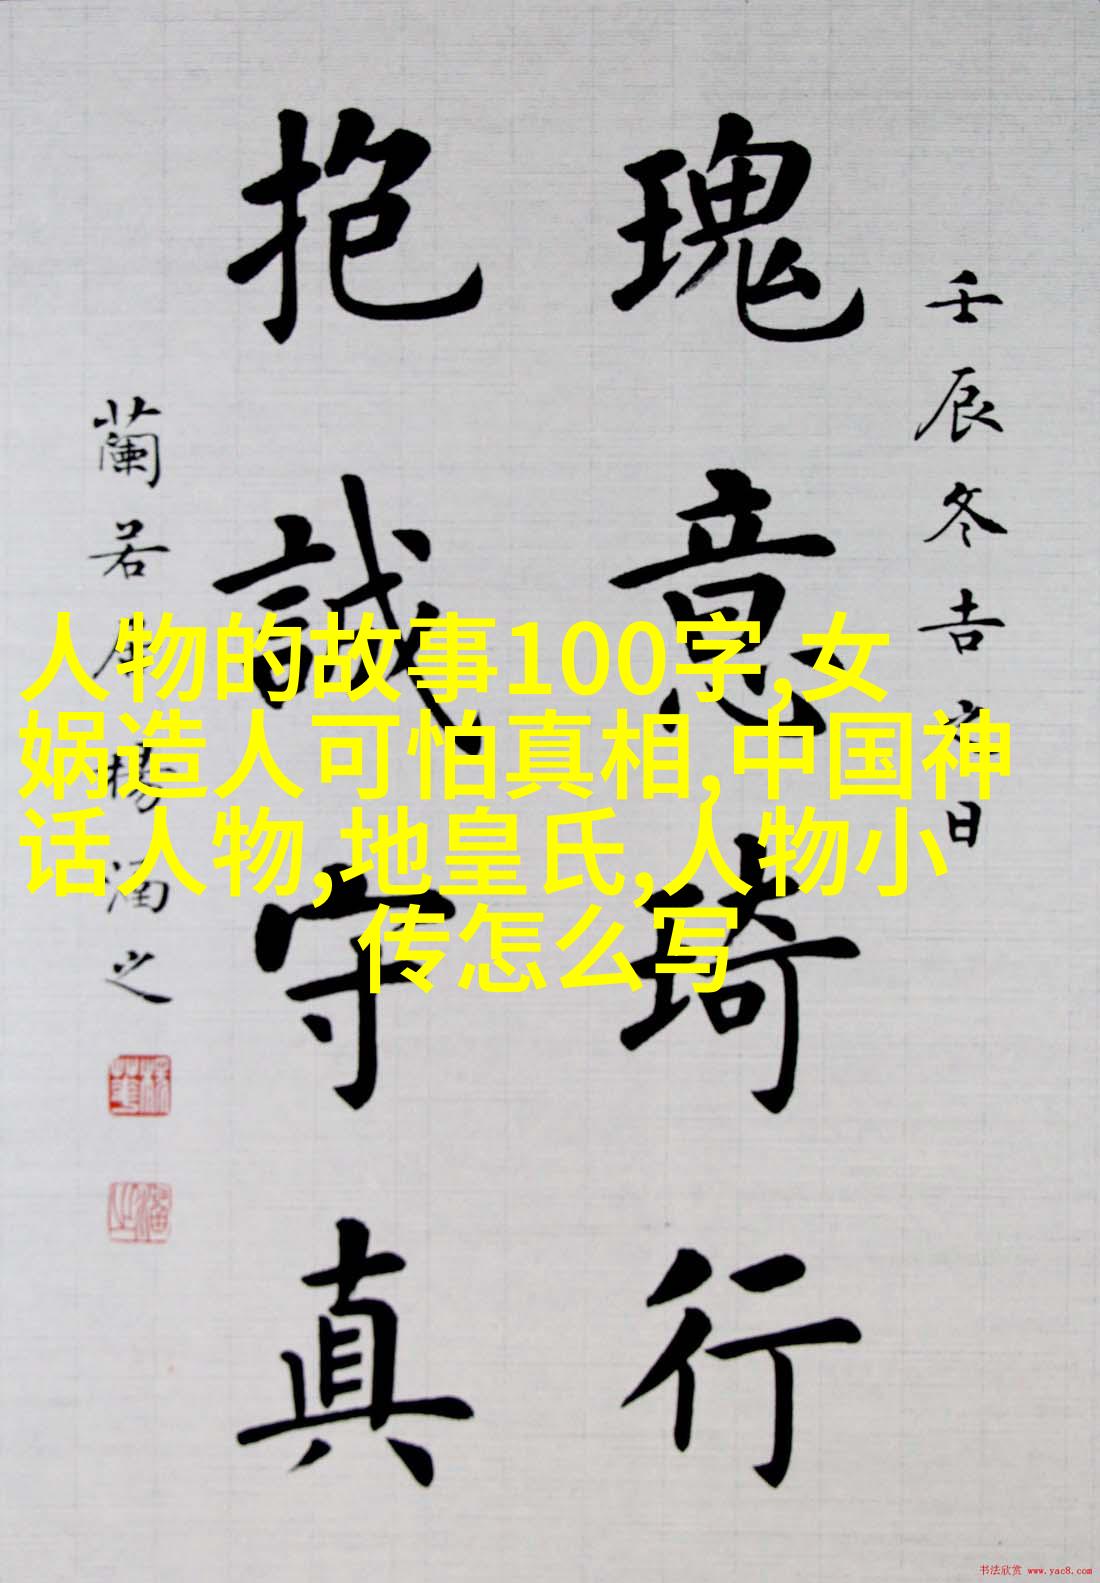 壬辰冬吉之日
瑰意琦行
抱誠守真
蘭若居楊涵之
人物的故事100字,女
娲造人可怕真相,中国神
话人物,地皇氏,人物小
传怎么写
书法欣赏 www.yac8.com